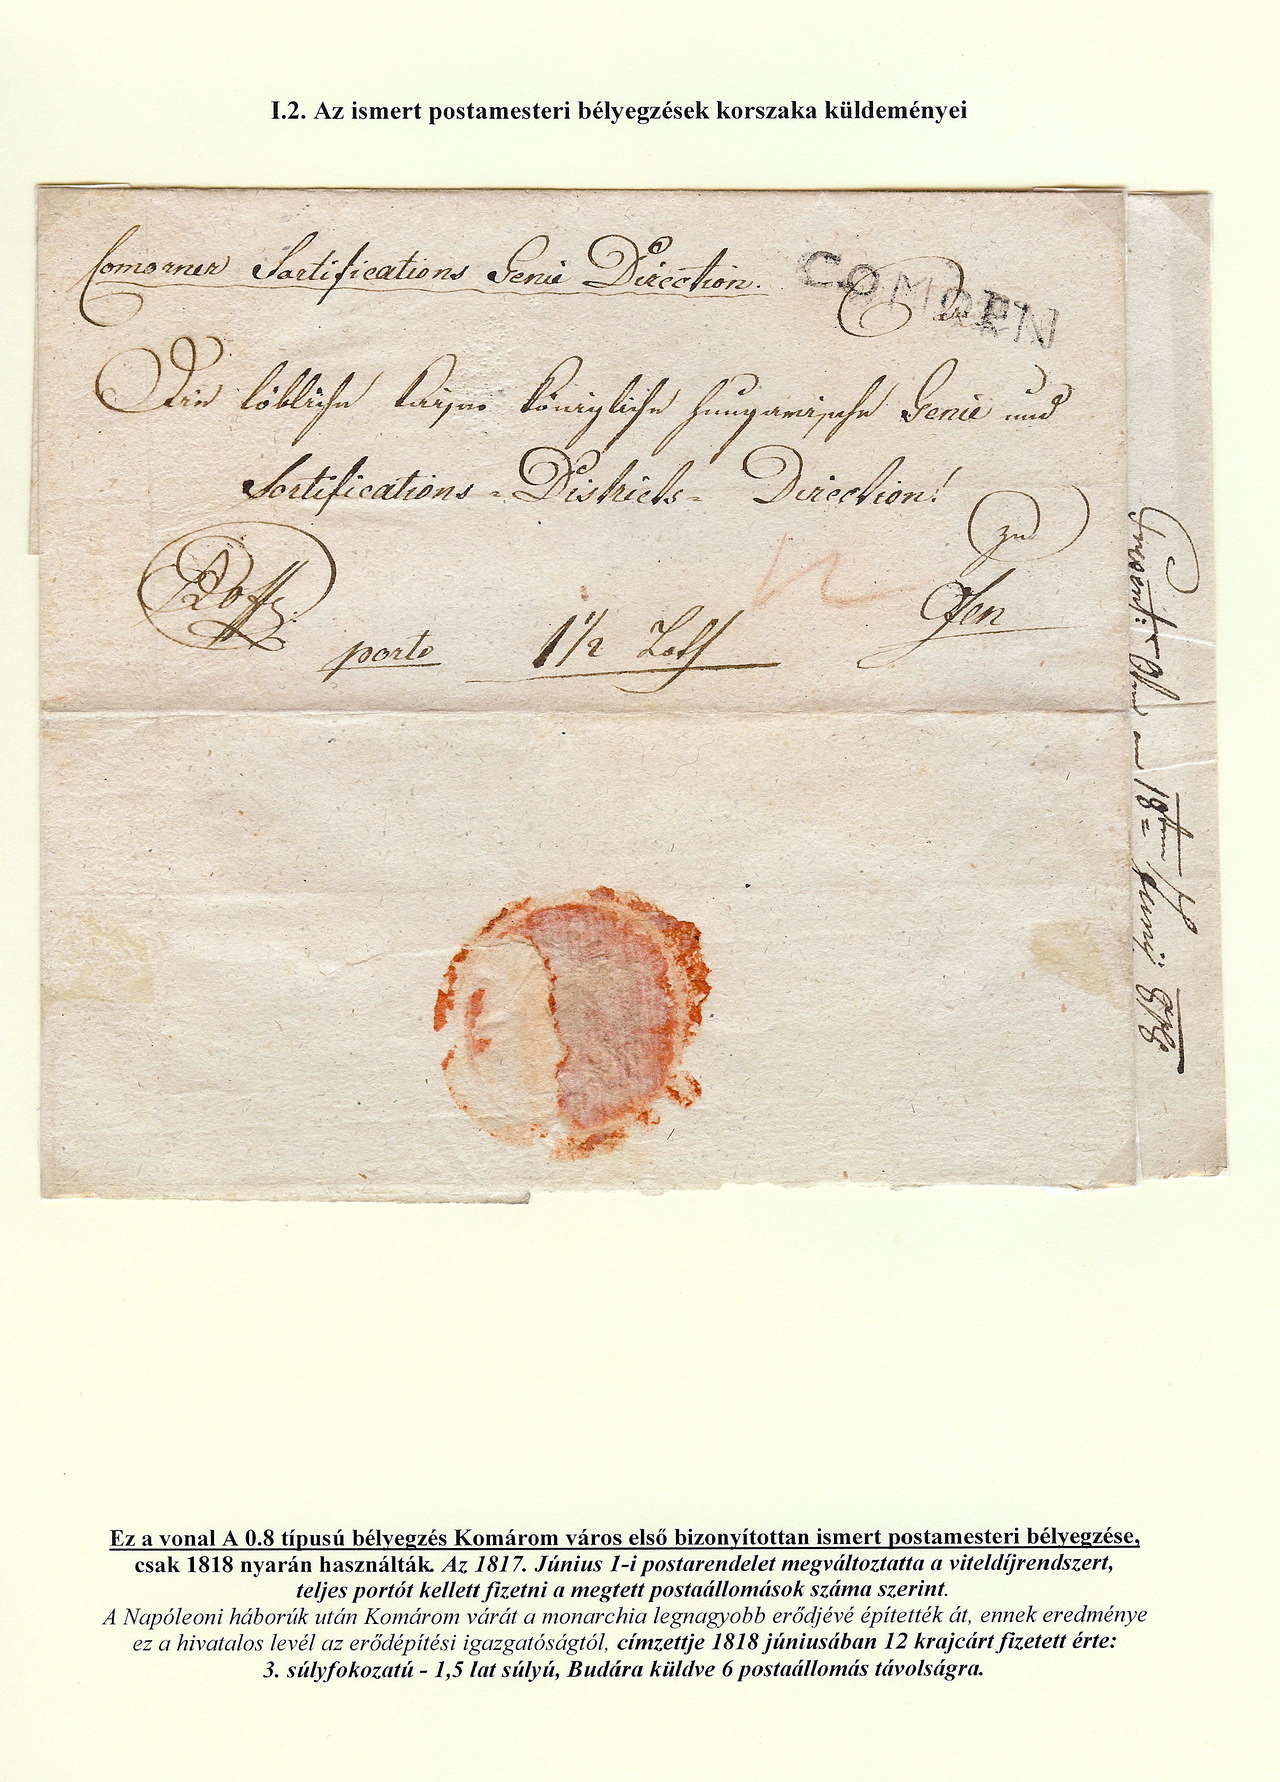 I.2. Az ismert postamesteri bélyegzések korszaka küldeményei
Comorner Fortifications Genie Direction.
COMORN
An
Die löbliche kaiser königliche hungarische Genie und
Fortifications - Districts - Direction!
zu
Ofen
porto 1½ Loth
12
Ez a vonal A 0.8 típusú bélyegzés Komárom város első bizonyítottan ismert postamesteri bélyegzése,
csak 1818 nyarán használták. Az 1817. Június 1-i postarendelet megváltoztatta a viteldíjrendszert,
teljes portót kellett fizetni a megtett postaállomások száma szerint.
A Napóleoni háborúk után Komárom várát a monarchia legnagyobb erődjévé építették át, ennek eredménye
ez a hivatalos levél az erődépítési igazgatóságtól, címzettje 1818 júniusában 12 krajcárt fizetett érte:
3. súlyfokozatú - 1,5 lat súlyú, Budára küldve 6 postaállomás távolságra.